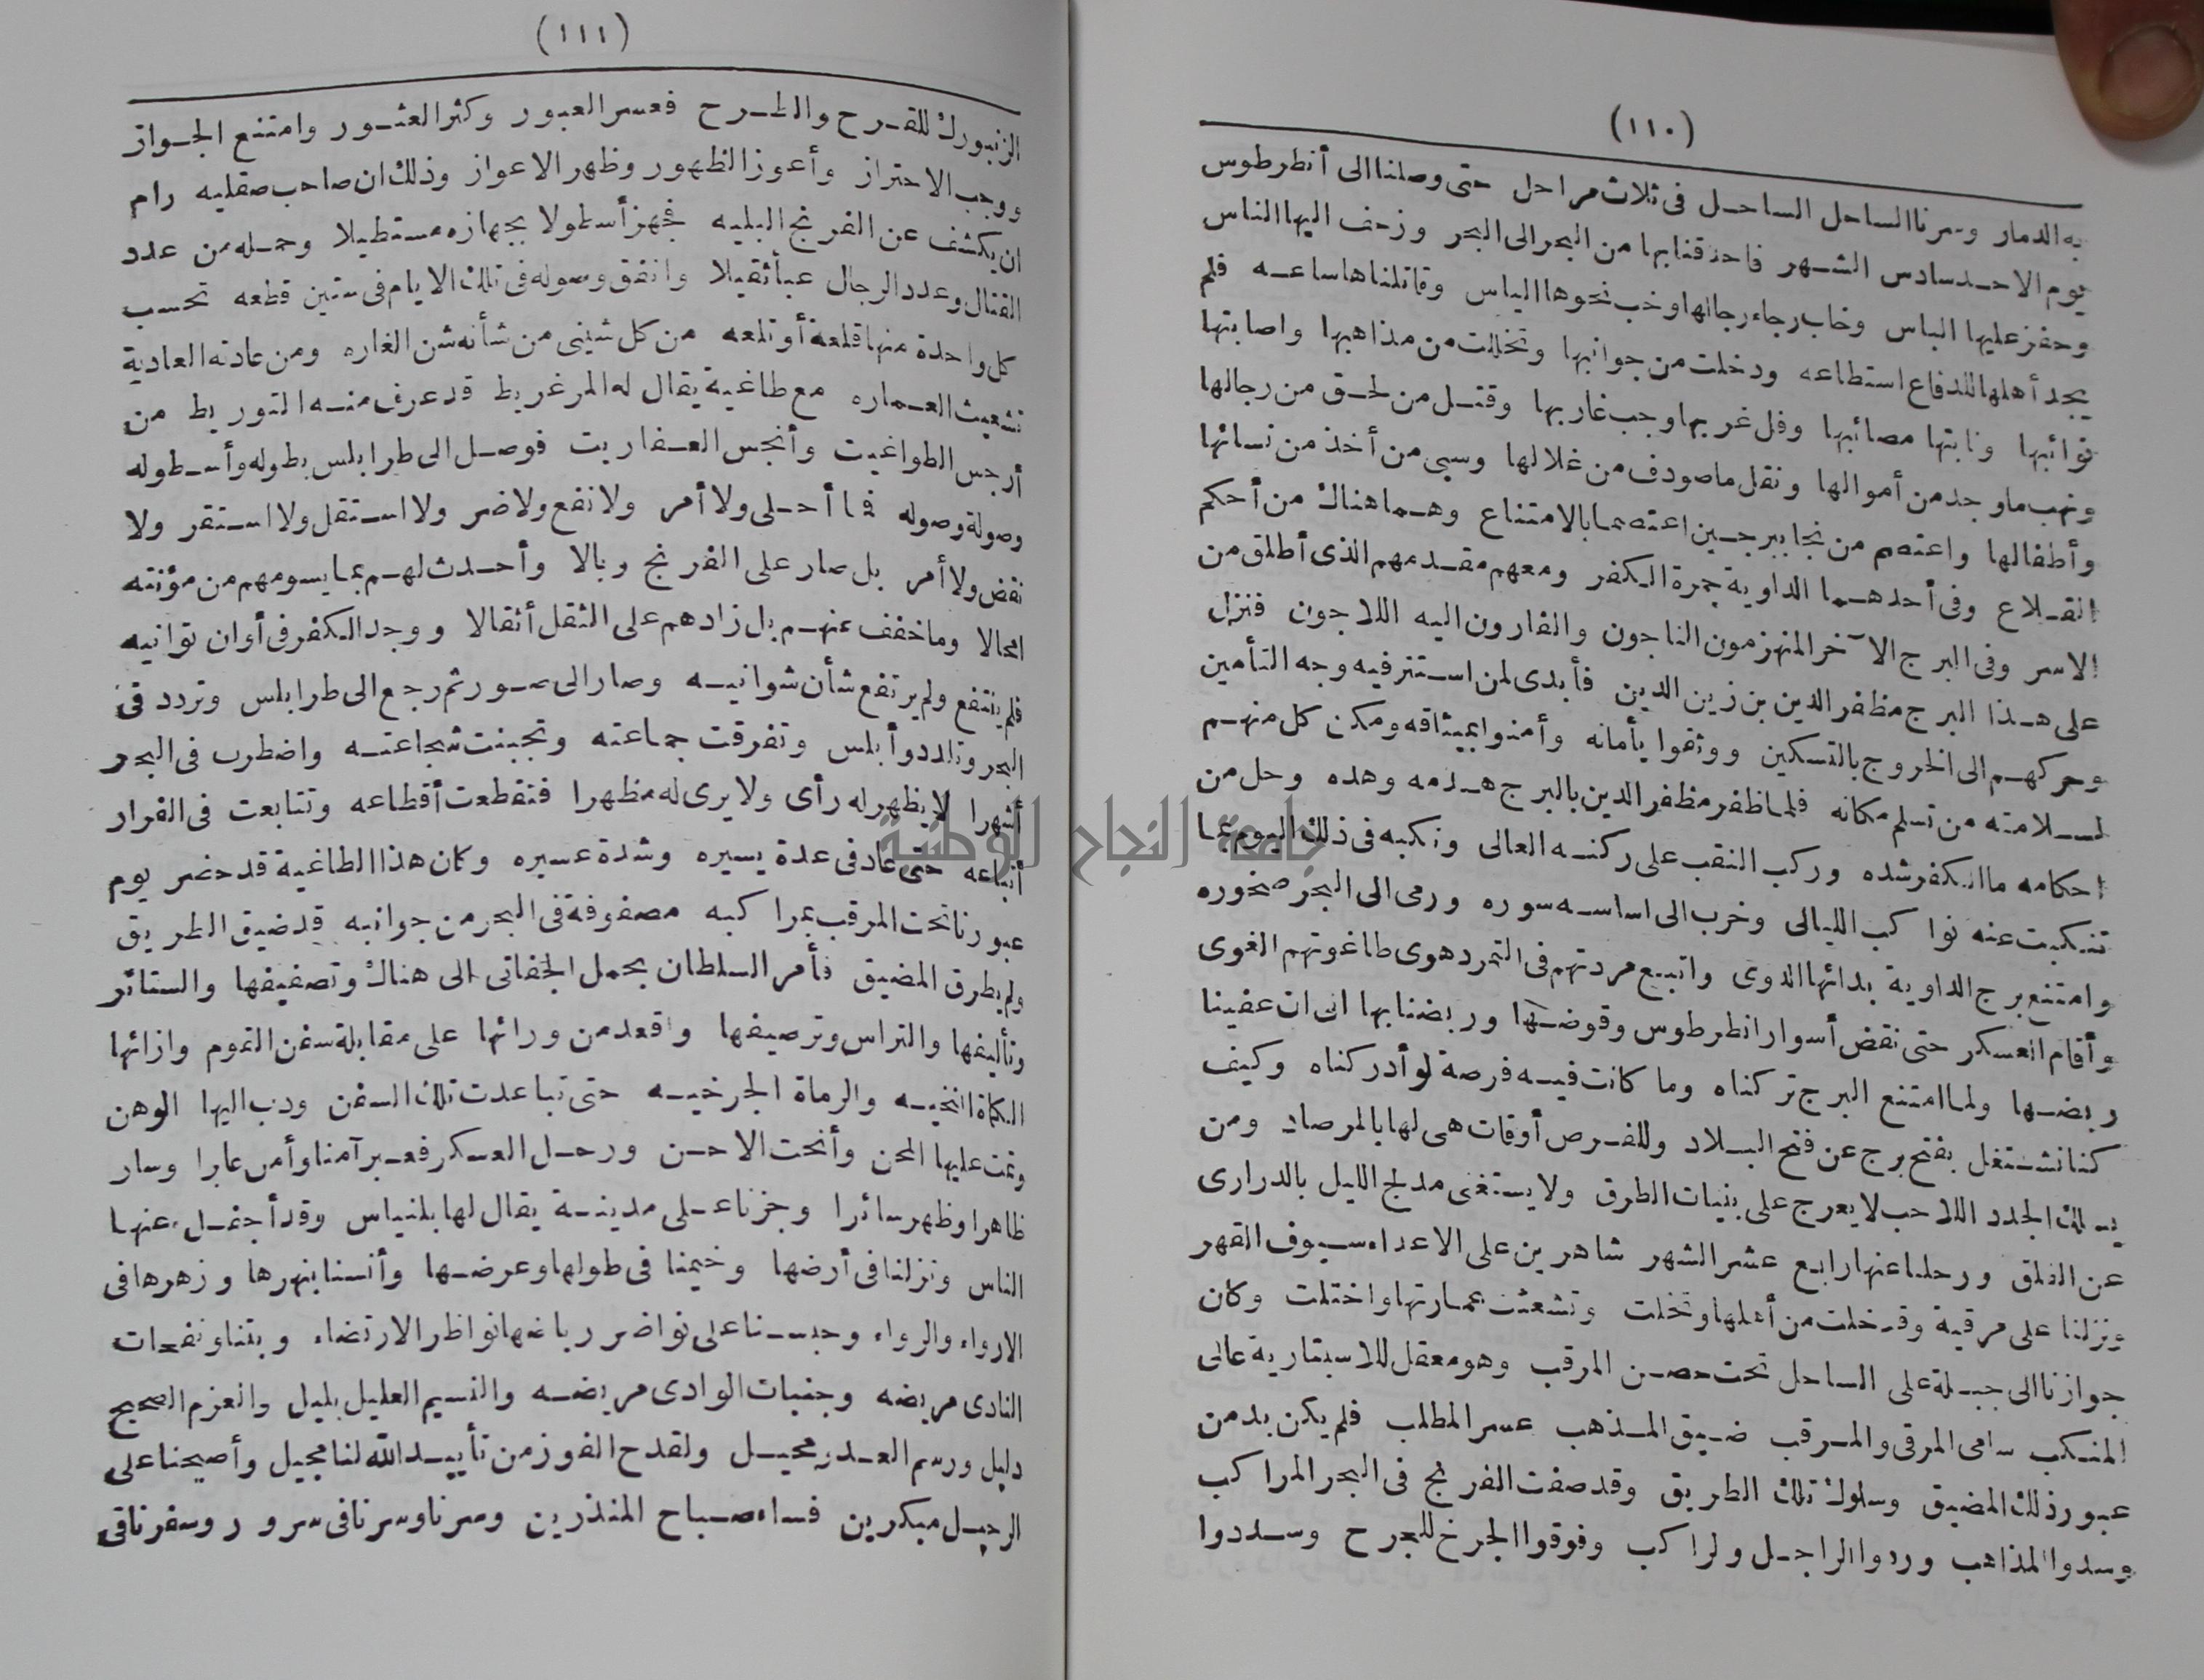 (١١٠)
به الدمار وسرنا الساحل الساحل فى ثلاث مراحل حتى وصلنا الى أنطرطوس
يوم الاحد سادس الشهر فاحدقنا بها من البحر الى البحر وزحف اليها الناس
وحفز عليها الباس وخاب رجاء رجالها وخب نحوها الياس وقاتلناها ساعه فلم
يجد أهلها للدفاع استطاعه ودخلت من جوانبها وتخللت من مذاهبها واصابتها
نوائبها ونابتها مصائبها وفل غربها وجب غاربها وقتل من لحق من رجالها
ونهب ما وجد من أموالها ونقل ما صودف من غلالها وسبى من أخذ من نسائها
وأطفالها واعتصم من نجا ببرجين اعتصما بالامتناع وهما هناك من أحكم
القلاع وفى أحدهما الداوية جمرة الكفر ومعهم مقدمهم الذى أطلق من
الاسر وفى البرج الآخر المنهزمون الناجون والفارون اليه اللاجون فنزل
على هذا البرج مظفر الدين بن زين الدين فأبدى لمن استترفيه وجه التأمين
وحركهم الى الخروج بالتسكين ووثقوا بأمانه وأمنوا بميثاقه ومكن كل منهم
لسلامته من تسلم مكانه فلما ظفر مظفر الدين بالبرج هدمه وهده وحل من
احكامه ما الكفر شده وركب النقب على ركنه العالى ونكبه فى ذلك اليوم بما
تنكبت عنه نوا كب الليالى وخرب الى اساسه سوره ورمى الى البحر صخوره
وامتنع برج الداوية بدائها الدوى واتبع مردتهم فى التمرد هوى طاغوتهم الغوى
وأقام العسكر حتى نقض أسوار انطرطوس وقوضها وربضنا بها الى ان عفينا
ربضها ولما امتنع البرج تركناه وما كانت فيه فرصة لو أدركناه وكيف
كنا نشتغل بفتح برج عن فتح البلاد وللفرص أوقات هى لها بالمرصاد ومن
يسلك الجدد اللاحب لا يعرج على بنيات الطرق ولا يستغنى مدلج الليل بالدرارى
عن الفلق ورحلنا عنها رابع عشر الشهر شاهرين على الاعداء سيوف القهر
ونزلنا على مرقية وقد خلت من أهلها وتخلت وتشعثت عمارتها واختلت وكان
جوازنا الى جبلة على الساحل تحت حصن المرقب وهو معقل للاسبتارية عالى
المنكب سامى المرقى والمرقب ضيق المذهب عسر المطلب فلم يكن بد من
عبور ذلك المضيق وسلوك تلك الطريق وقد صفت الفرنج فى البحر المراكب
وسدوا المذاهب وردوا الراجل ولراكب وفوقوا الجرخ للجرح وسددوا
(١١١)
الزنبورك للقرح والطرح فعسر العبور وكثر العثور وامتنع الجواز
ووجب الاحتراز وأعوز الظهور وظهر الاعواز وذلك ان صاحب صقليه رام
ان يكشف عن الفرنج البليه فجهز أسطولا بجهازه مستطيلا وحمله من عدد
القتال وعدد الرجال عبأ ثقيلا واتفق وصوله فى تلك الايام فى ستين قطعه تحسب
كل واحدة منها قلعة أو تلعه من كل شينى من شأنه شن الغاره ومن عادته العادية
تشعيث العماره مع طاغية يقال له المرغريط قد عرف منه التوريط من
أرجس الطواغيت وأنجس العفاريت فوصل الى طرابلس بطوله وأسطوله
وصولة وصوله فما أحلى ولا أمر ولا نفع ولا ضر ولا استقل ولا استقر ولا
نقض ولا أمر بل صار على الفرنج وبالا وأحدث لهم بما يسومهم من مؤنته
امحالا وما خفف عنهم بل زادهم على الثقل أثقالا ووجد الكفر فى أوان توانيه
فلم ينتفع ولم يرتفع شأن شوانيه وصار الى صور ثم رجع الى طرابلس وتردد فى
البحر وتلدد وأبلس وتفرقت جماعته وتجبنت شجاعته واضطرب فى البحر
أشهرا لا يظهر له رأى ولا يرى له مظهرا فتقطعت أقطاعه وتتابعت فى الفرار
أتباعه حتى عاد فى عدة يسيره وشدة عسيره وكان هذا الطاغية قد حضر يوم
عبورنا تحت المرقب بمراكبه مصفوفة فى البحر من جوانبه قد ضيق الطريق
ولم يطرق المضيق فأمر السلطان بحمل الجفاتى الى هناك وتصفيفها والستائر
وتأليفها والتراس وترصيفها واقعد من ورائها على مقابلة سفن القوم وازائها
الكماة النخيه والرماة الجرخيه حتى تباعدت تلك السفن ودب اليها الوهن
وتمت عليها المحن وأنحت الاحن ورحل العسكر فعبر آمنا وأمن عابرا وسار
ظاهرا وظهر سائرا وجزنا على مدينة يقال لها بلنياس وقد أجفل عنها
الناس ونزلنا فى أرضها وخيمنا فى طولها وعرضها وأنسنا بنهرها وزهرها فى
الارواء والرواء وحبسنا على نواضر رباضها نواظر الارتضاء وبتنا ونفحات
النادى مريضه وجنبات الوادى مريضه والنسيم العليل بليل والعزم الصحيح
دليل ورسم العدر محيل ولقدح الفوز من تأييد الله لنا مجيل وأصبحنا على
الرحيل مبكرين فساء صباح المنذرين وسرنا وسرنا فى سرور وسفرنا فى
جامعة النجاح الوطنية